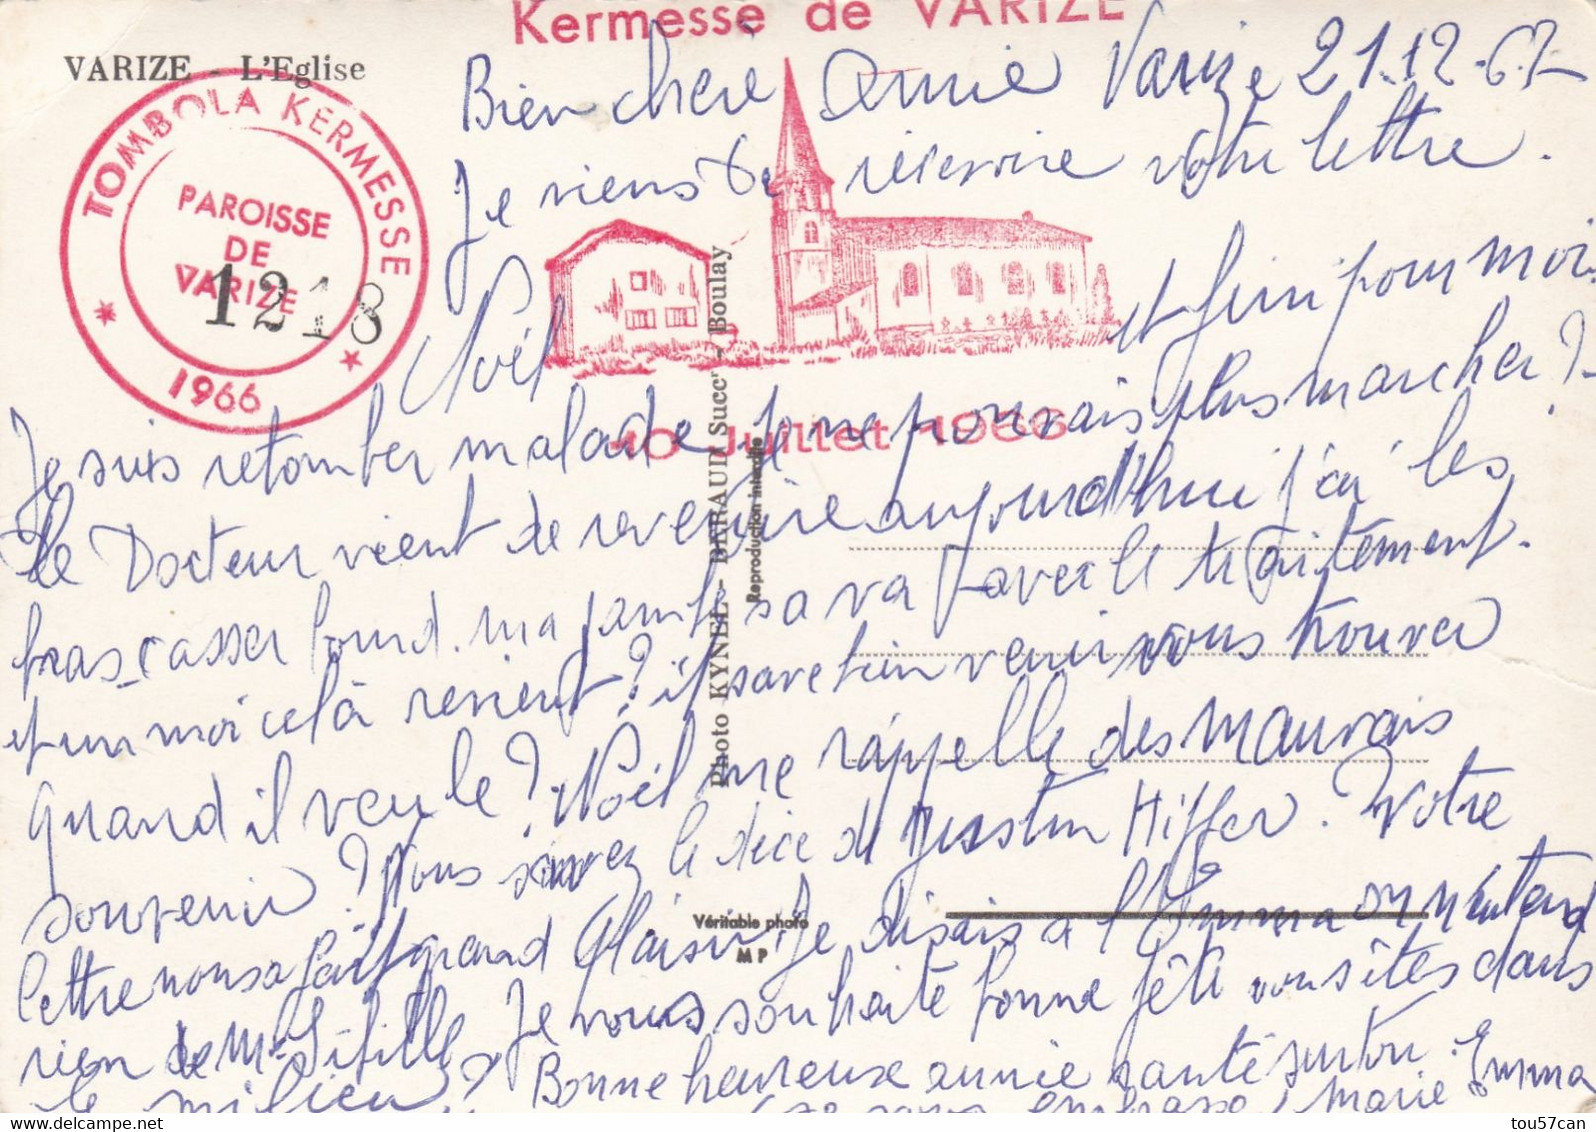 Kermesse de VARIZE
VARIZE - L'Eglise
TOMBOLA KERMESSE
PAROISSE
DE
VARIZE
1218
1966
10 Juillet 1966
Photo KYNEL - BERAUD Succr - Boulay
Reproduction interdite
Véritable photo
M P
Bien chère Annie Varize 21.12.67
Je viens de recevoire votre lettre.
Noël et fini pour moi
Je suis retomber malade je ne pouvais plus marcher ?
le Docteur vient de revenire aujourd'hui j'ai les
bras casser lourd. ma jambe sa va avec le traitement.
et un moi celà revient ? il save bien venir vous trouver
quand il veu le ? Noël me rappelle des mauvais
souvenir ? Vous savez le déce de Justin Hiffer. Votre
lettre nous a fait grand plaisir Je disais a l'Emma on n'entend
rien de Je vous souhaite bonne fête vous êtes dans
le milieu ? Bonne heureuse année santé surtou. Emma
embrasse Marie
tou57can